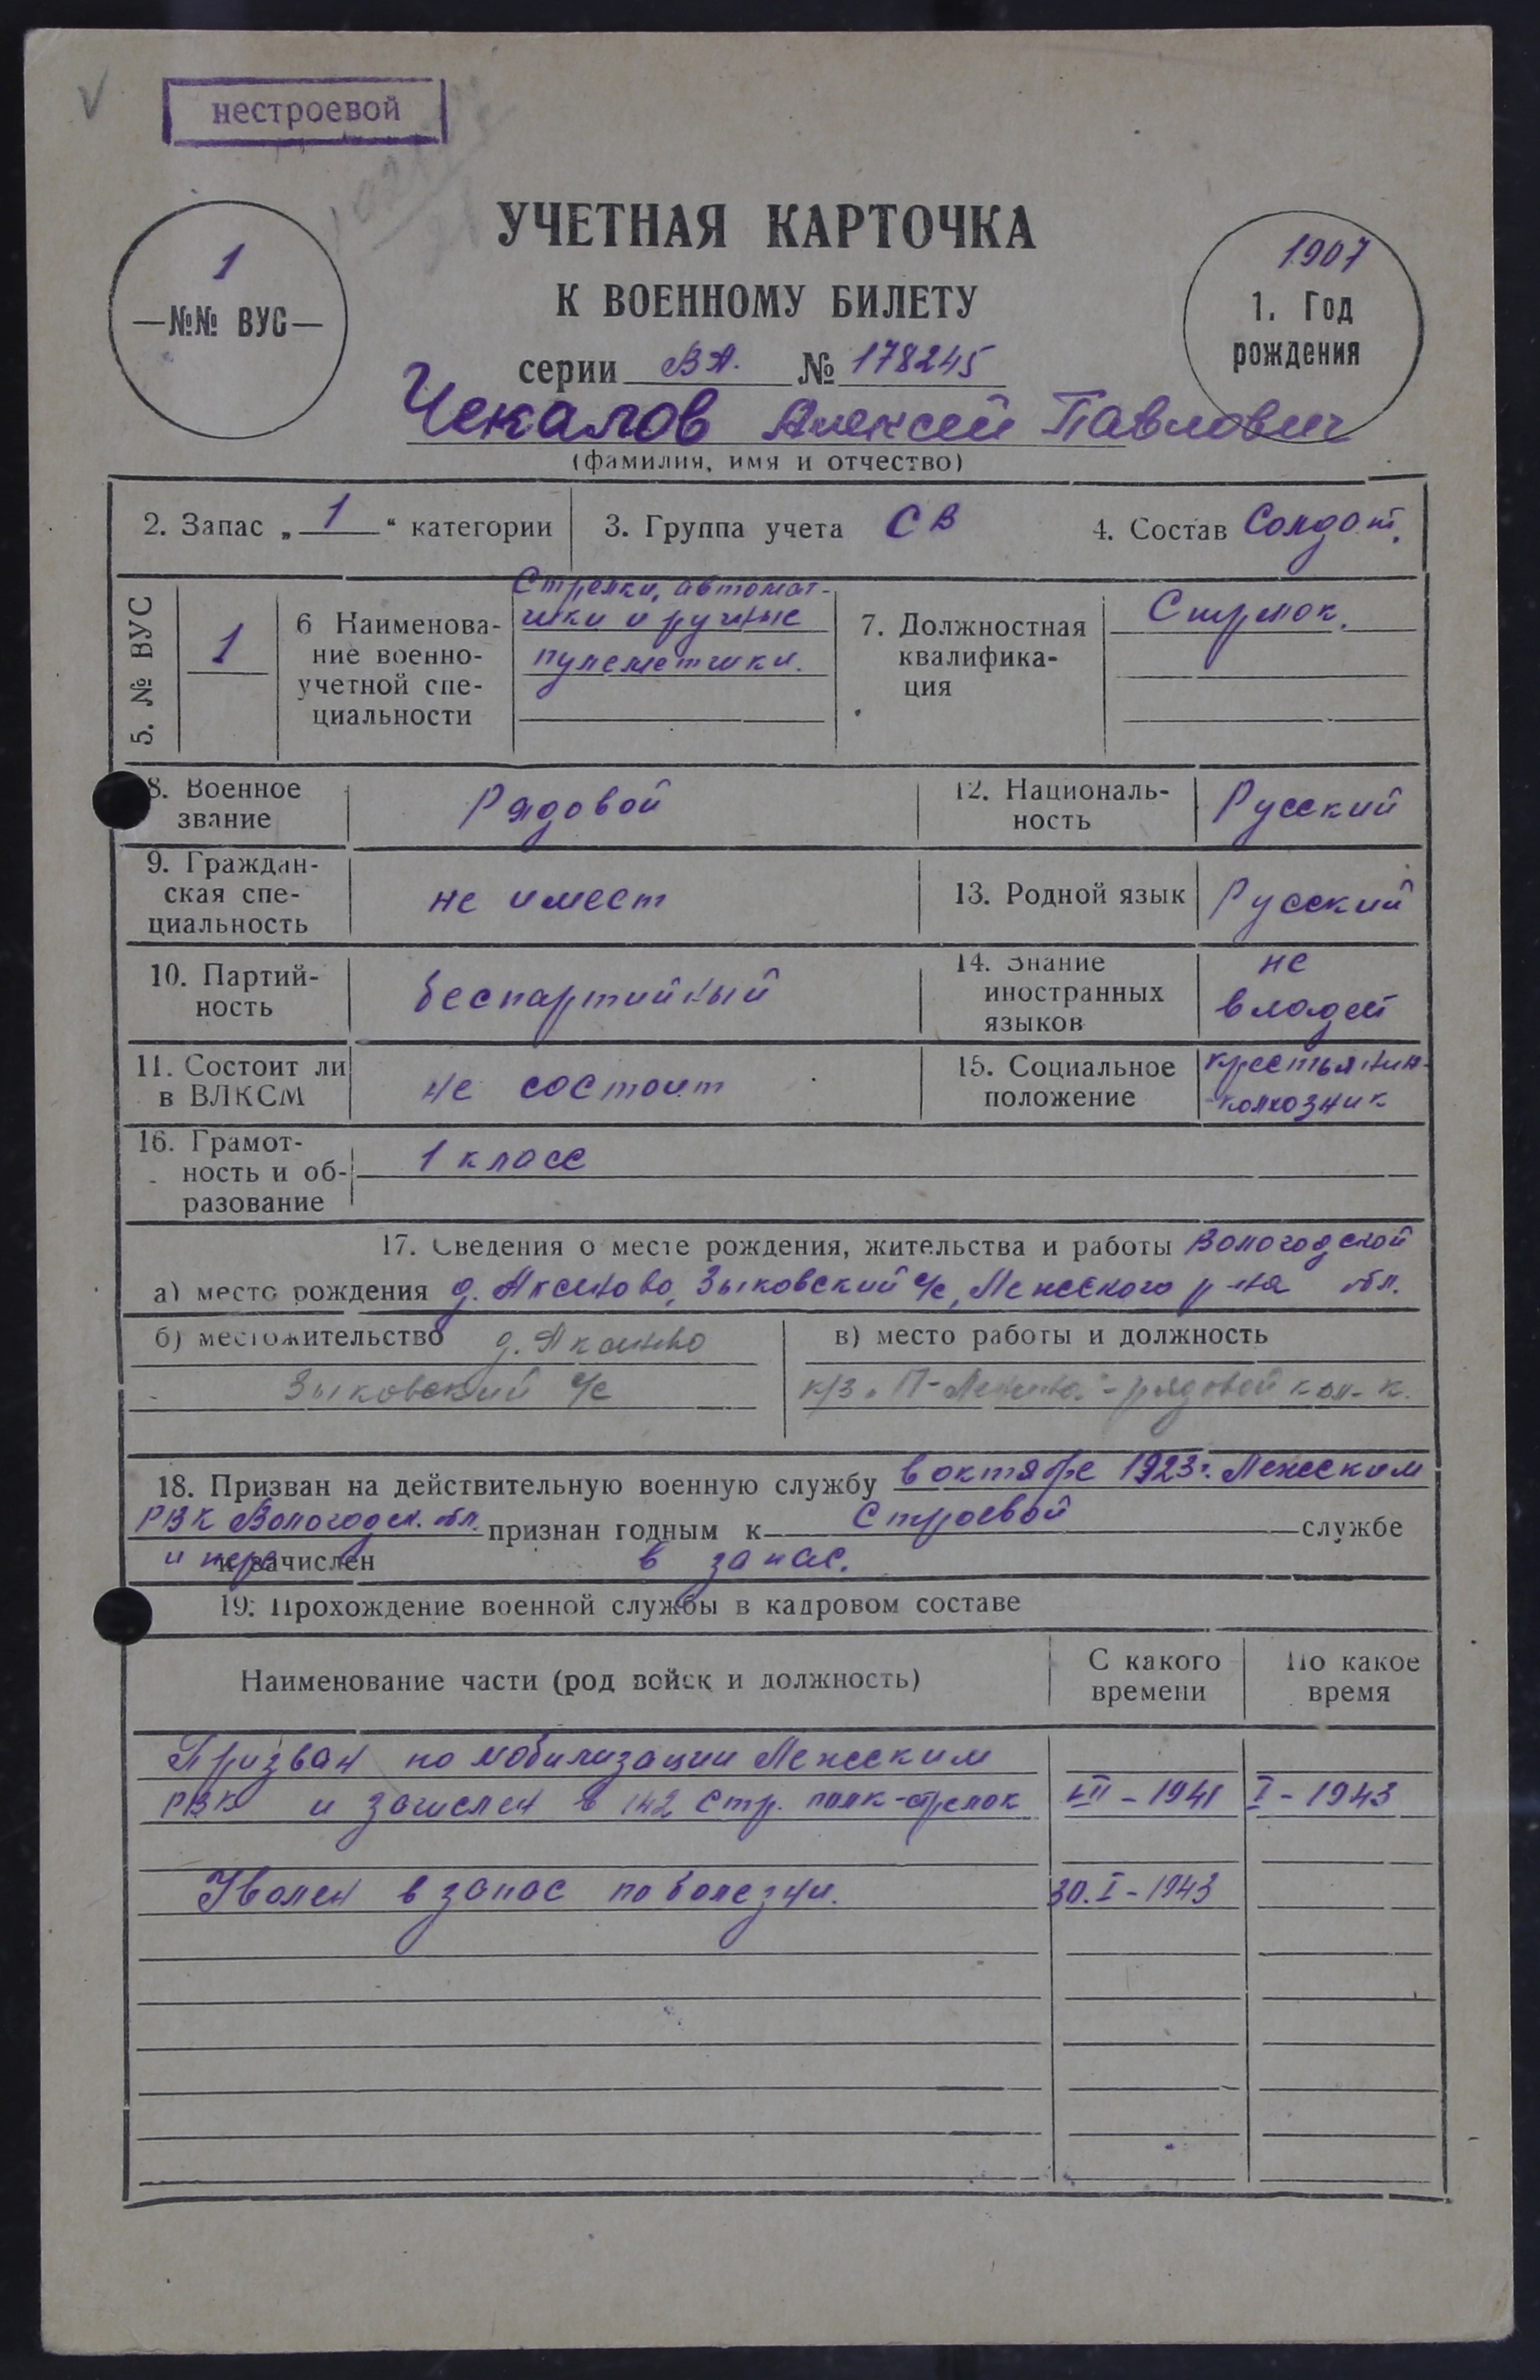 нестроевой
1
—№№ ВУС—
УЧЕТНАЯ КАРТОЧКА
К ВОЕННОМУ БИЛЕТУ
серии ВА. № 178245
1907
1. Год
рождения
Чекалов Алексей Павлович
(фамилия, имя и отчество)
2. Запас „ 1 “ категории
3. Группа учета СВ
4. Состав Солдат.
5. № ВУС
1
6 Наименова-
ние военно-
учетной спе-
циальности
Стрелки, автомат-
чики и ручные
пулеметчики.
7. Должностная
квалифика-
ция
Стрелок.
8. Военное
звание
Рядовой
12. Националь-
ность
Русский
9. Граждан-
ская спе-
циальность
не имеет
13. Родной язык
Русский
10. Партий-
ность
беспартийный
14. Знание
иностранных
языков
не
владеет
11. Состоит ли
в ВЛКСМ
не состоит
15. Социальное
положение
крестьянин-
-колхозник
16. Грамот-
ность и об-
разование
1 класс
17. Сведения о месте рождения, жительства и работы Вологодской
а) место рождения д. Аксеново, Зыковский с/с, Лежского р-на обл.
б) местожительство д. Аксеново
Зыковский с/с
в) место работы и должность
к/з рядовой кол-к.
18. Призван на действительную военную службу в октябре 1923г. Лежским
РВК Вологодск. обл. признан годным к Строевой службе
и зачислен в запас.
19. Прохождение военной службы в кадровом составе
Наименование части (род войск и должность)
С какого
времени
По какое
время
Призван по мобилизации Лежским
РВК и зачислен в 142 стр. полк-стрелок VII-1941 I-1943
Уволен в запас по болезни. 30.I-1943